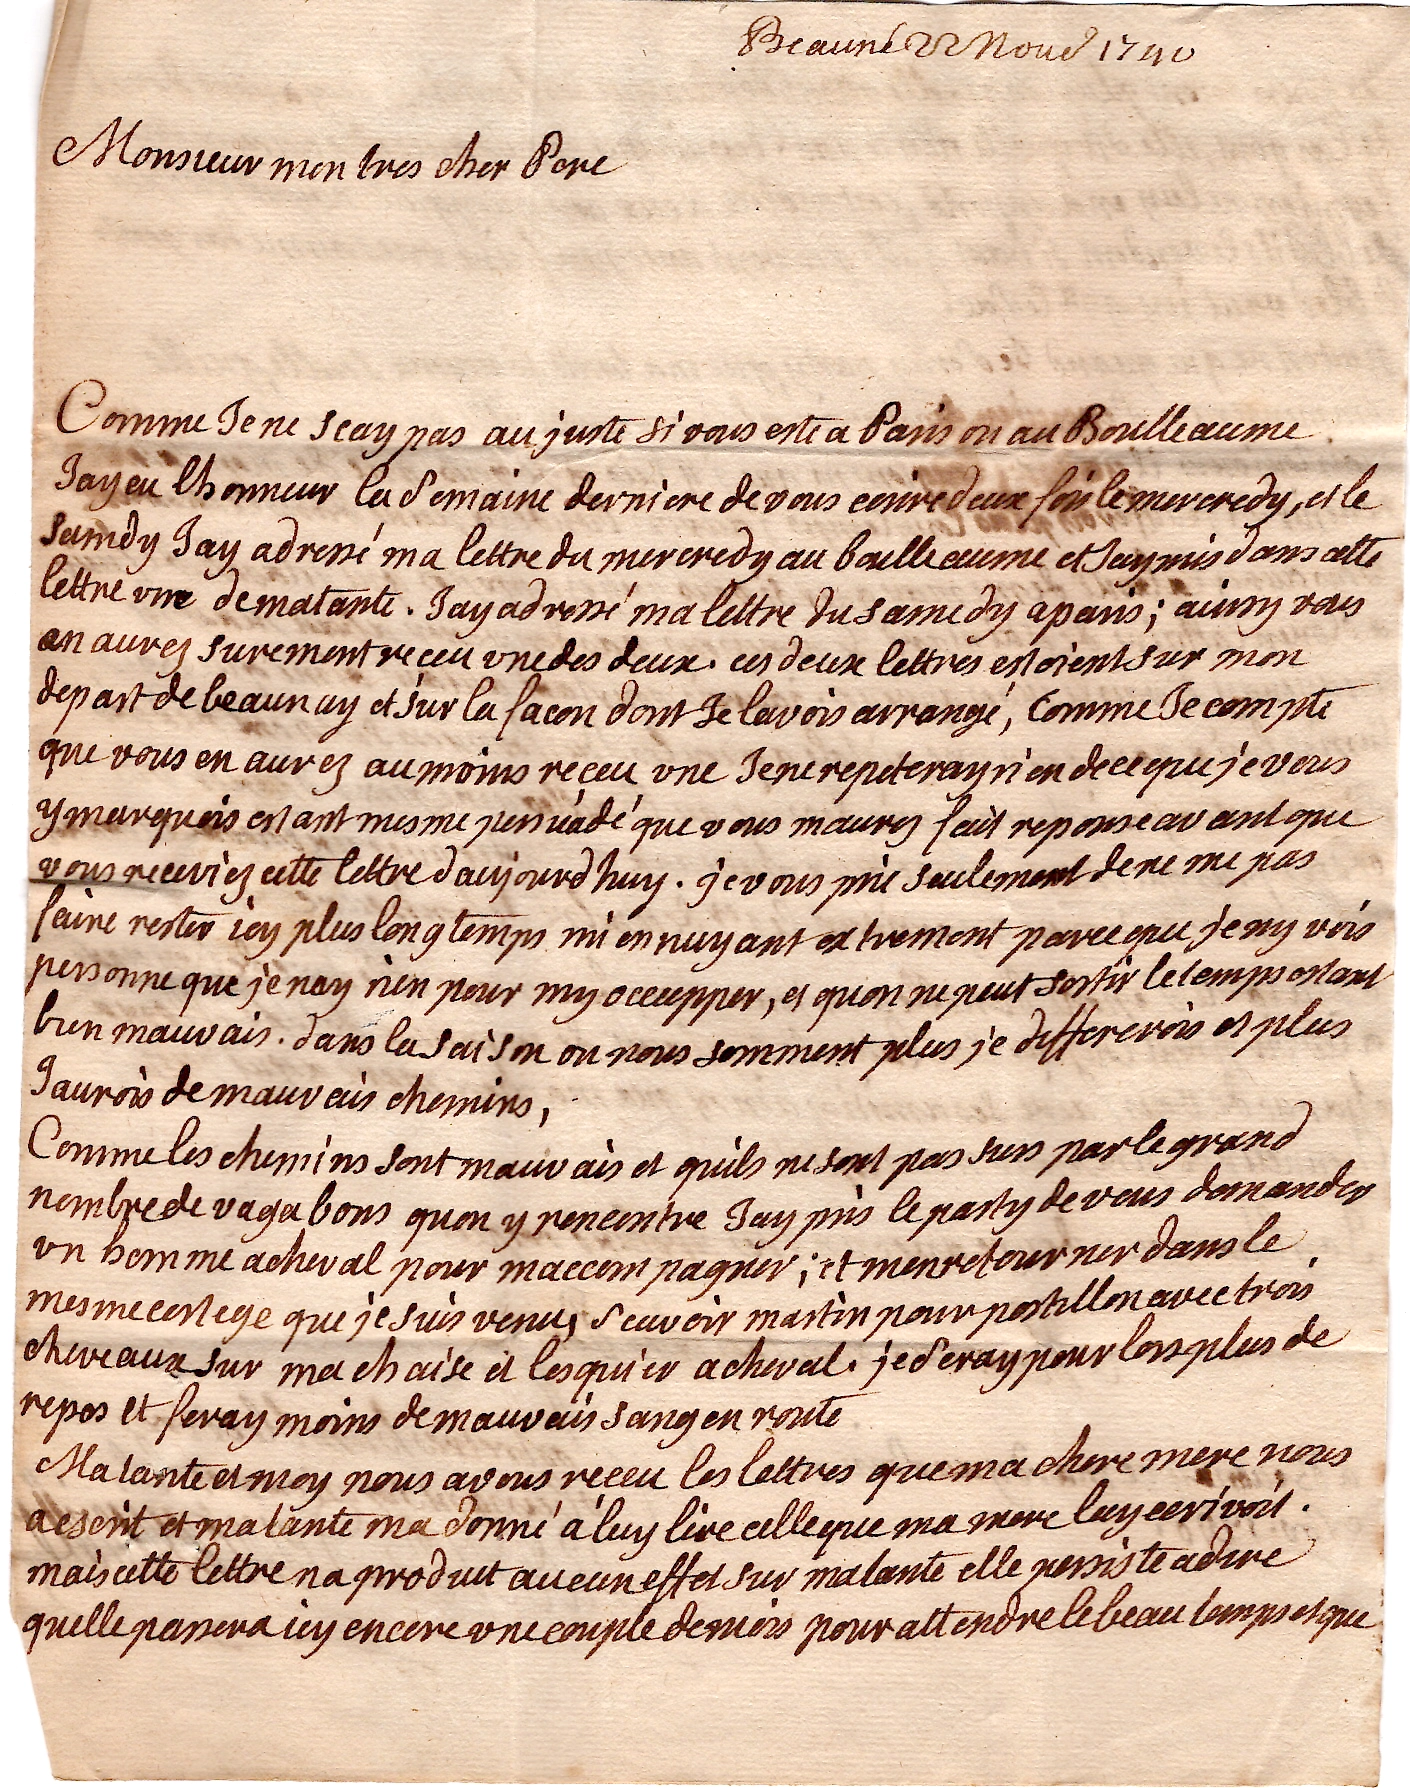 Beauné 22 Nour 1740
Monsieur mon tres cher Pere
Comme Je ne scay pas au juste si vous este a Paris ou au Boulleaume
Jay eu lhonneur la Semaine derniere de vous ecrire deux fois le mercredy, et le
samdy Jay adressé ma lettre du mercredy au boulleaume et Jay mis dans cette
lettre vne de matante. Jay adressé ma lettre du samedy a paris; ainsy vous
an aurez surement receu vne des deux. ces deux lettres estoient sur mon
depart de beaunay et sur la facon dont Je lavois arrangé, Comme Je compte
que vous en aurez au moins receu vne Je ne repeteray rien de ce que je vous
y marquois estant mesme persuadé que vous maurez fait reponse avant que
vous receviez cette lettre daujourdhuy. je vous prie seulement de ne me pas
faire rester icy plus long temps mi ennuyant extrement parce que je ny vois
personne que je nay rien pour my occcupper, et quon ne peut sortir le temps estant
bien mauvais. dans la saison ou nous somment plus je differerois et plus
Jaurois de mauvais chemins,
Comme les chemins sont mauvais et quils ne sont pas surs par le grand
nombre de vagabons quon y rencontre Jay pris le party de vous demander
vn homme a cheval pour maccompagner; et menretourner dans le
mesme cortege que je suis venu, Scavoir martin pour postillon avec trois
chevaux sur ma chaise et lesquier a cheval. je Seray pour lors plus de
repos et feray moins de mauvais sang en route
Matante et moy nous avons receu les lettres que ma chere mere nous
a escrit et matante ma donné á luy lire celle que ma mere luy ecrivoit.
mais cette lettre na produit aucun effet sur matante elle persiste a dire
quelle passera icy encore vne couple de mois pour attendre le beau temps et que